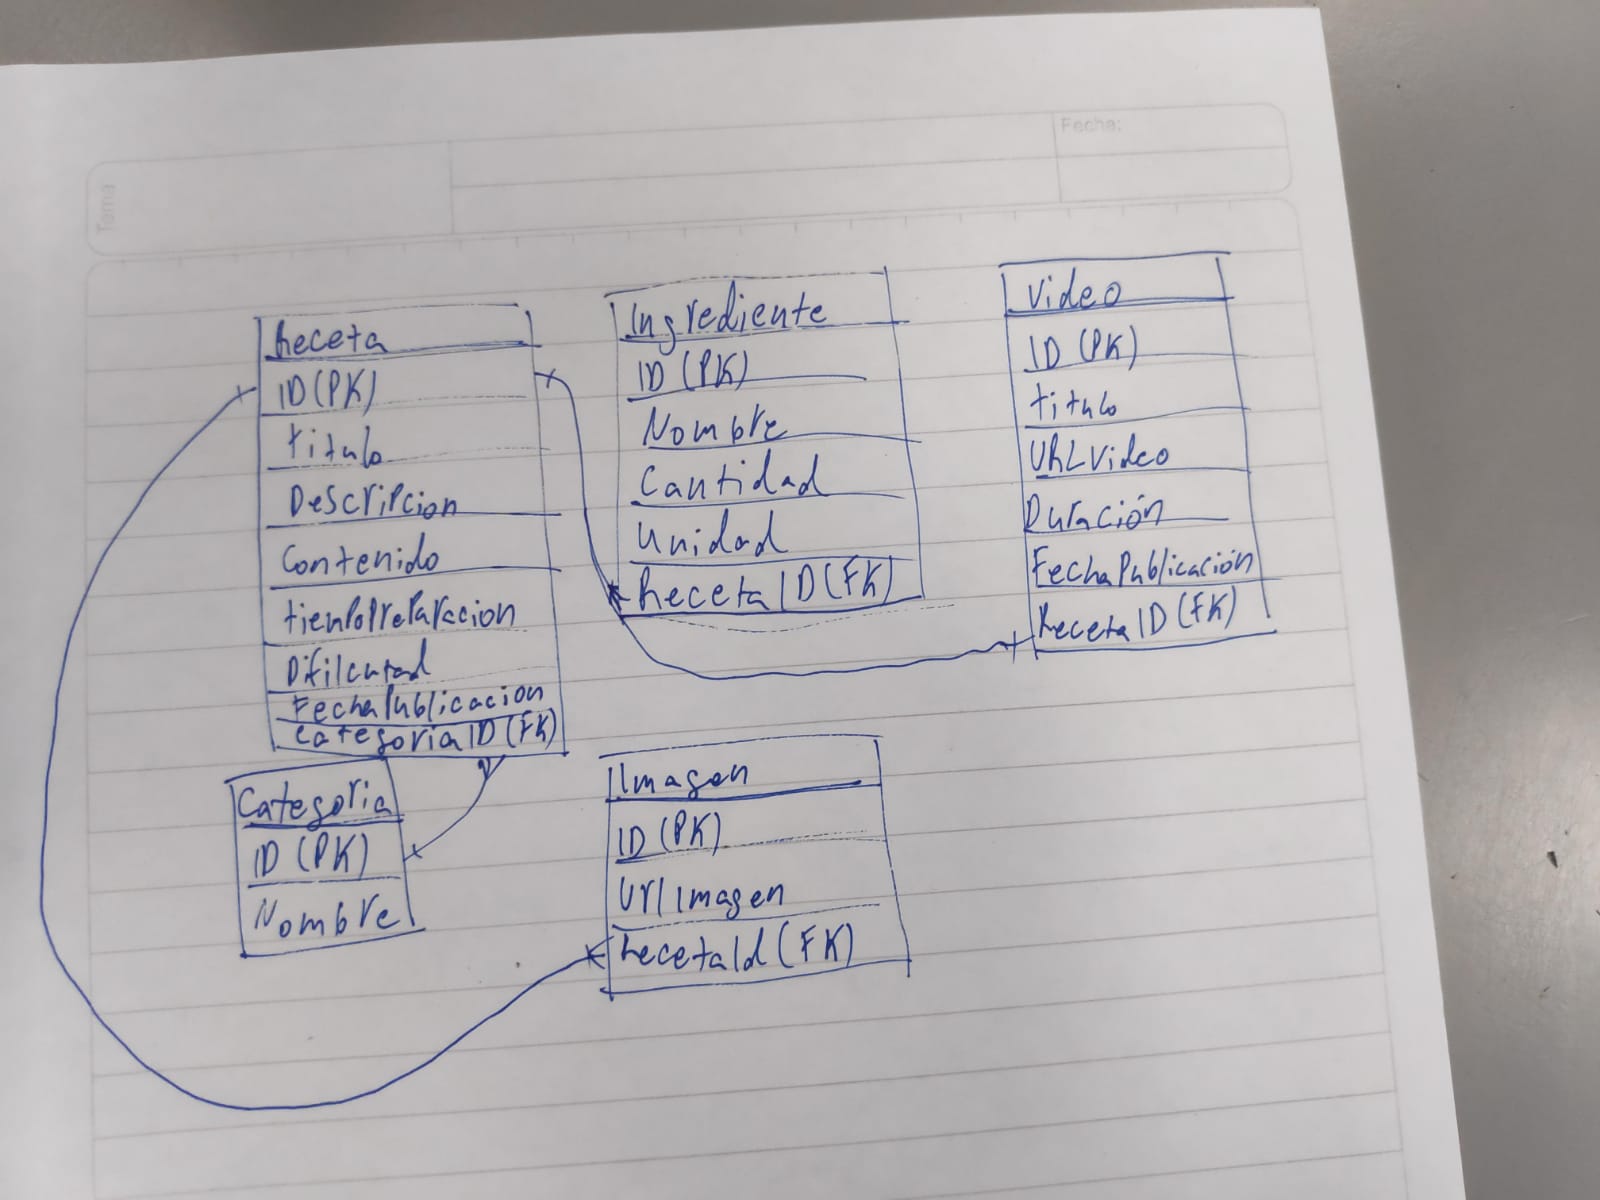 Tema
Fecha:
Receta
ID (PK)
titulo
Descripcion
Contenido
tiempoPreparacion
Dificultad
FechaPublicacion
CategoriaID (FK)
Ingrediente
ID (PK)
Nombre
Cantidad
Unidad
RecetaID (FK)
Video
ID (PK)
titulo
URLVideo
Duración
FechaPublicación
RecetaID (FK)
Categoria
ID (PK)
Nombre
Imagen
ID (PK)
UrlImagen
RecetaId (FK)